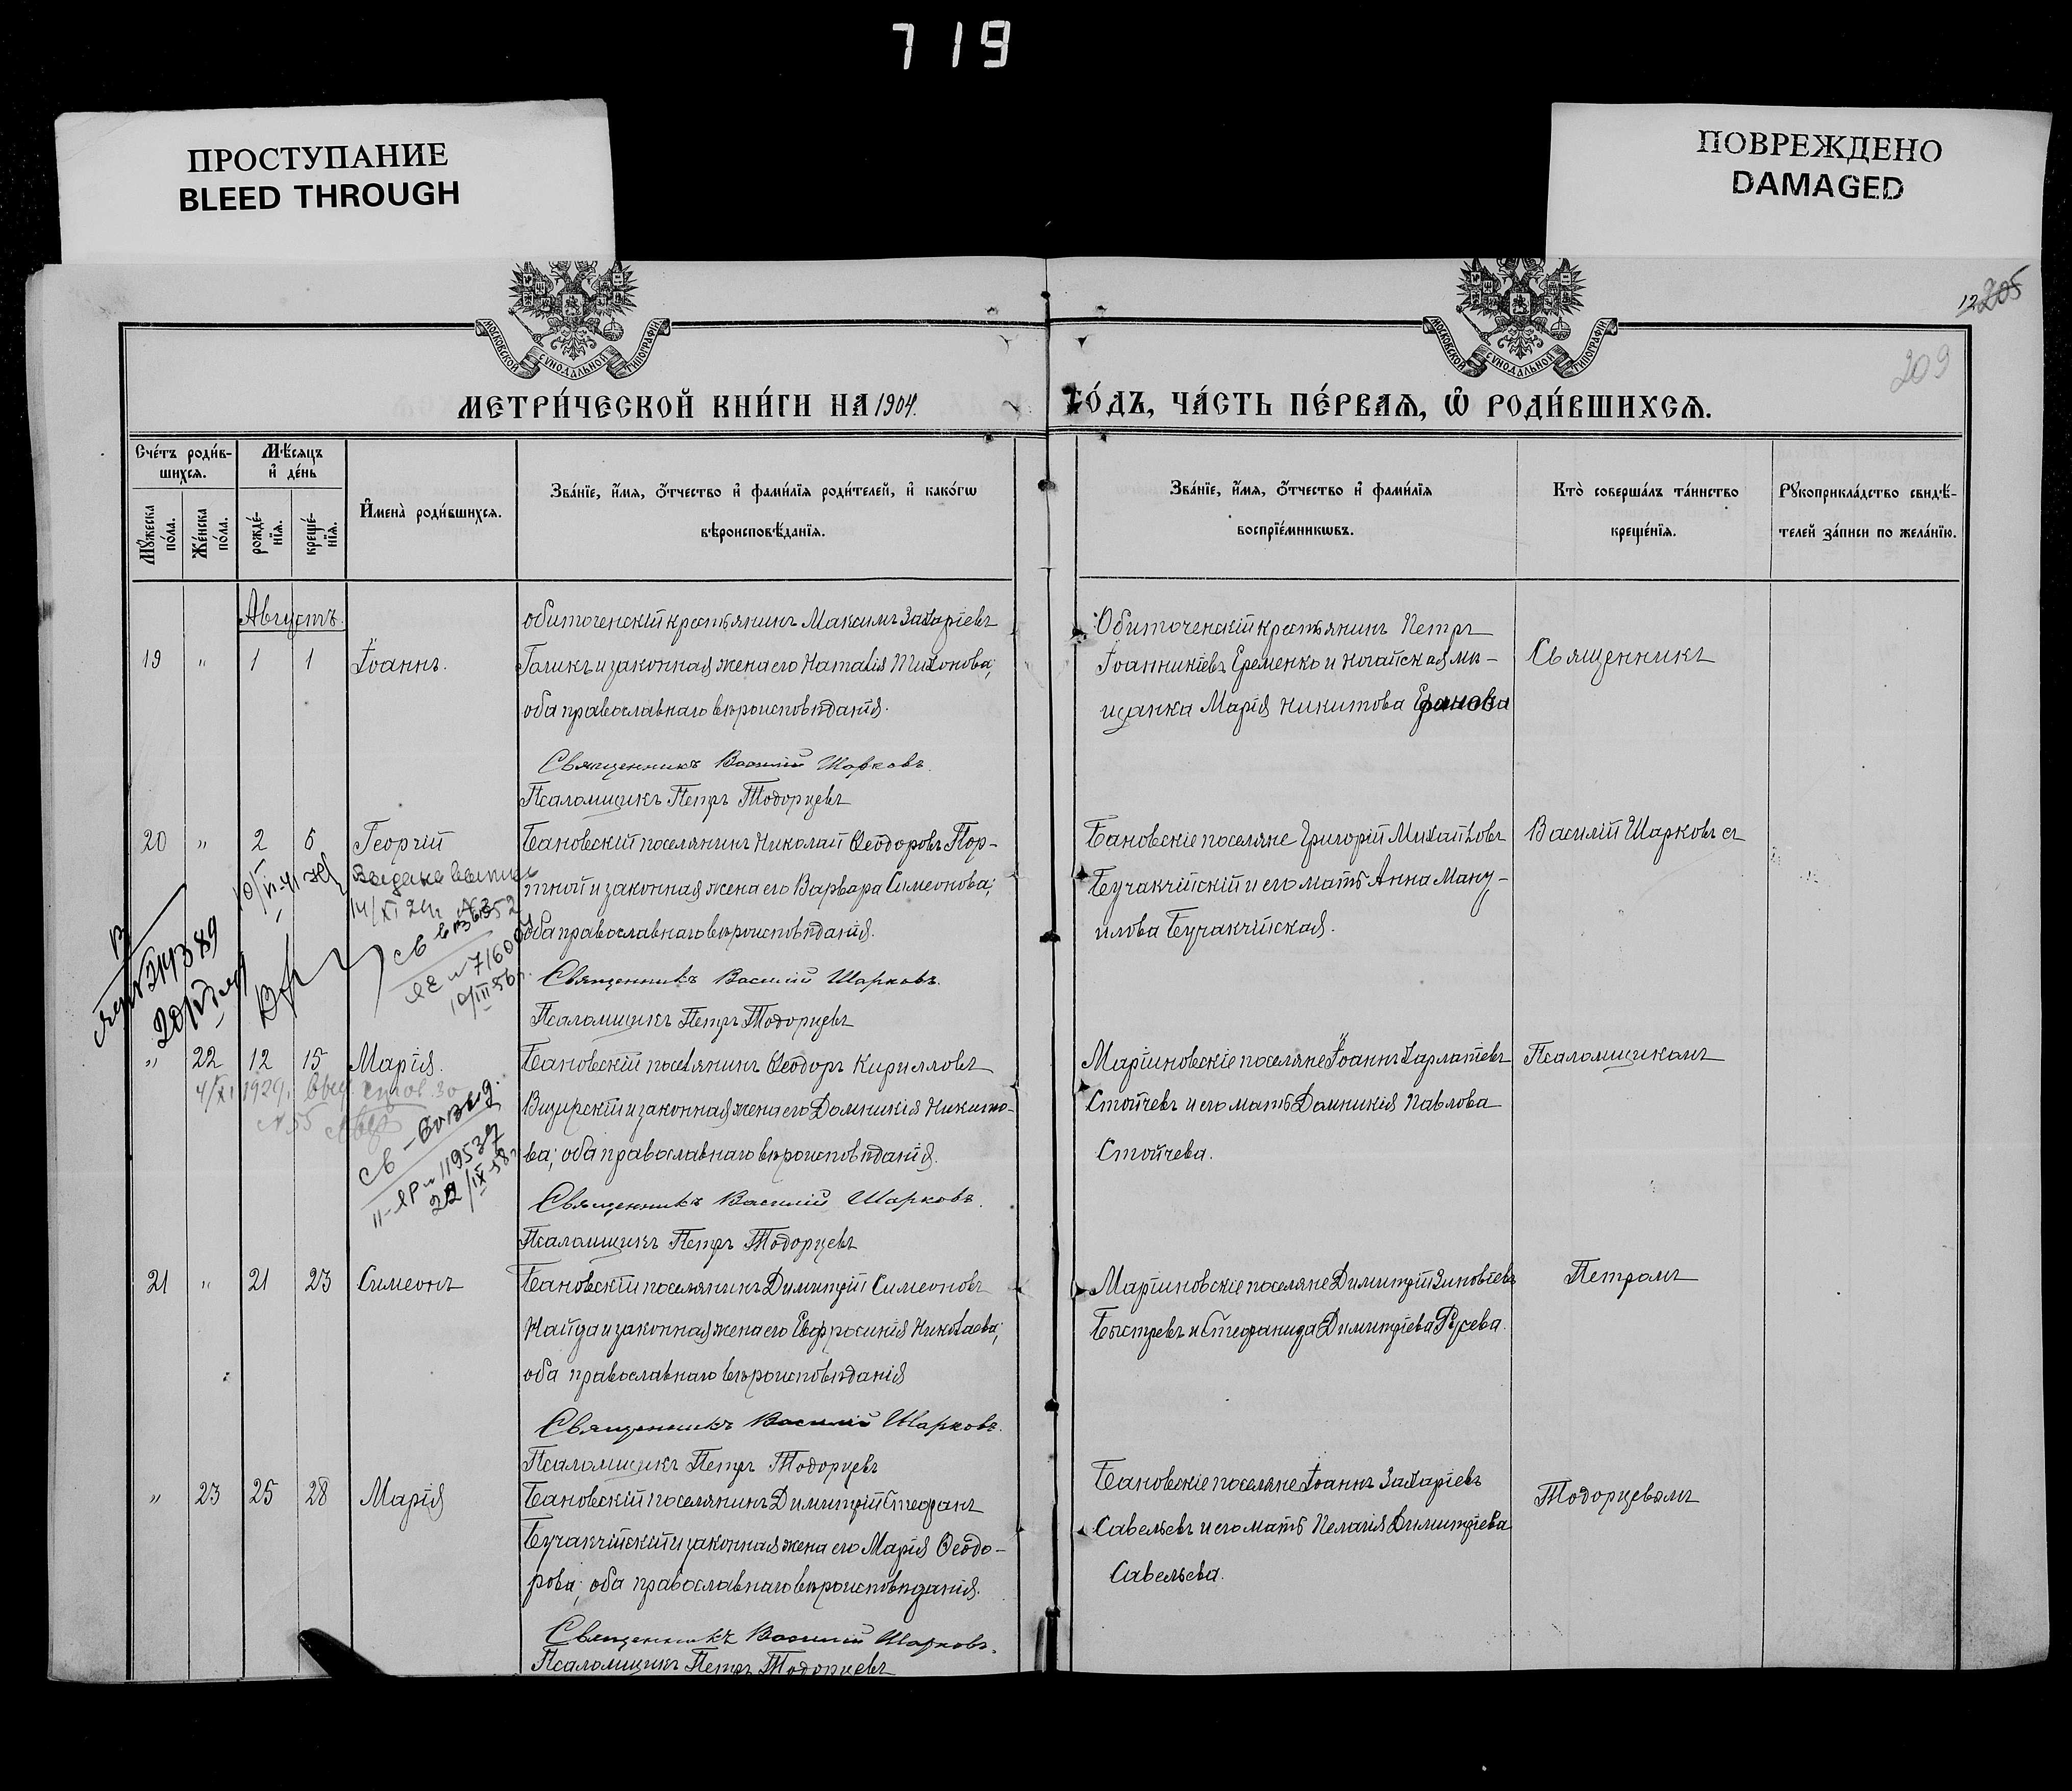 719
ПРОСТУПАНИЕ
BLEED THROUGH
ПОВРЕЖДЕНО
DAMAGED
МОСКОВСКОЙ СѴНОДАЛЬНОЙ ТИПОГРАФІИ
МОСКОВСКОЙ СѴНОДАЛЬНОЙ ТИПОГРАФІИ
12 205
209
МЕТРИ́ЧЕСКОЙ КНИ́ГИ НА 1904.
ГО́ДЪ, ЧА́СТЬ ПЕ́РВАѦ, Ѡ҆ РОДИ́ВШИХСѦ.
Сче́тъ роди́в-
шихсѧ.
Мѣ́сѧцъ
и҆ де́нь
Мꙋ́жеска
по́ла.
Же́нска
по́ла.
рожде́-
нїѧ.
креще́-
нїѧ.
И҆мена̀ роди́вшихсѧ.
Зва́нїе, и҆́мѧ, ѻ҆́тчество и҆ фами́лїѧ роди́телей, и҆ како́гѡ
вѣроисповѣ́данїѧ.
Зва́нїе, и҆́мѧ, ѻ҆́тчество и҆ фами́лїѧ
воспрїе́мникѡвъ.
Кто̀ соверша́лъ та́инство
креще́нїѧ.
Рꙋкоприкла́дство свидѣ́-
телей за́писи по жела́нїю.
Августъ.
19 " 1 1 Іоаннъ.
обиточенскій крестьянинъ Максимъ Захаріевъ
Галикъ и законная жена его Наталія Тихонова;
оба православнаго вѣроисповѣданія.
Священникъ Василій Шарковъ.
Псаломщикъ Петръ Тодорцевъ
Обиточенскій крестьянинъ Петръ
Іоанникіевъ Еременко и ногайская мѣ-
щанка Марія Никитова
Священникъ
20 " 2 6 Георгій
Бановскій поселянинъ Николай Ѳеодоровъ Пор-
тной и законная жена его Варвара Симеонова;
оба православнаго вѣроисповѣданія.
Священникъ Василій Шарковъ.
Псаломщикъ Петръ Тодорцевъ
Бановскіе поселяне Григорій Михайловъ
Бучакчійскій и его мать Анна Ману-
илова Бучакчійская.
Василій Шарковъ съ
14/XI 24г
10/III 56г.
20/V
" 22 12 15 Марія.
4/XI 1929г.
N 55
22/IX 58г
Бановскій поселянинъ Ѳеодоръ Кирилловъ
Визирскій и законная жена его Домникія Никито-
ва; оба православнаго вѣроисповѣданія.
Священникъ Василій Шарковъ.
Псаломщикъ Петръ Тодорцевъ
Маріиновскіе поселяне Іоаннъ Харлапіевъ
Стойчевъ и его мать Домникія Павлова
Стойчева.
Псаломщикомъ
21 " 21 23 Симеонъ
Бановскій поселянинъ Димитрій Симеоновъ
Найда и законная жена его Евфросинія Николаева;
оба православнаго вѣроисповѣданія
Священникъ Василій Шарковъ.
Псаломщикъ Петръ Тодорцевъ
Маріиновскіе поселяне Димитрій Зиновіевъ
Быстревъ и Стефанида Димитріева Русева.
Петромъ
" 23 25 28 Марія
Бановскій поселянинъ Димитрій Стефанъ
Бучакчійскій и законная жена его Марія Ѳеодо-
рова; оба православнаго вѣроисповѣданія.
Священникъ Василій Шарковъ.
Псаломщикъ Петръ Тодорцевъ
Бановскіе поселяне Іоаннъ Захаріевъ
Савельевъ и его мать Пелагія Димитріева
Савельева.
Тодорцевымъ